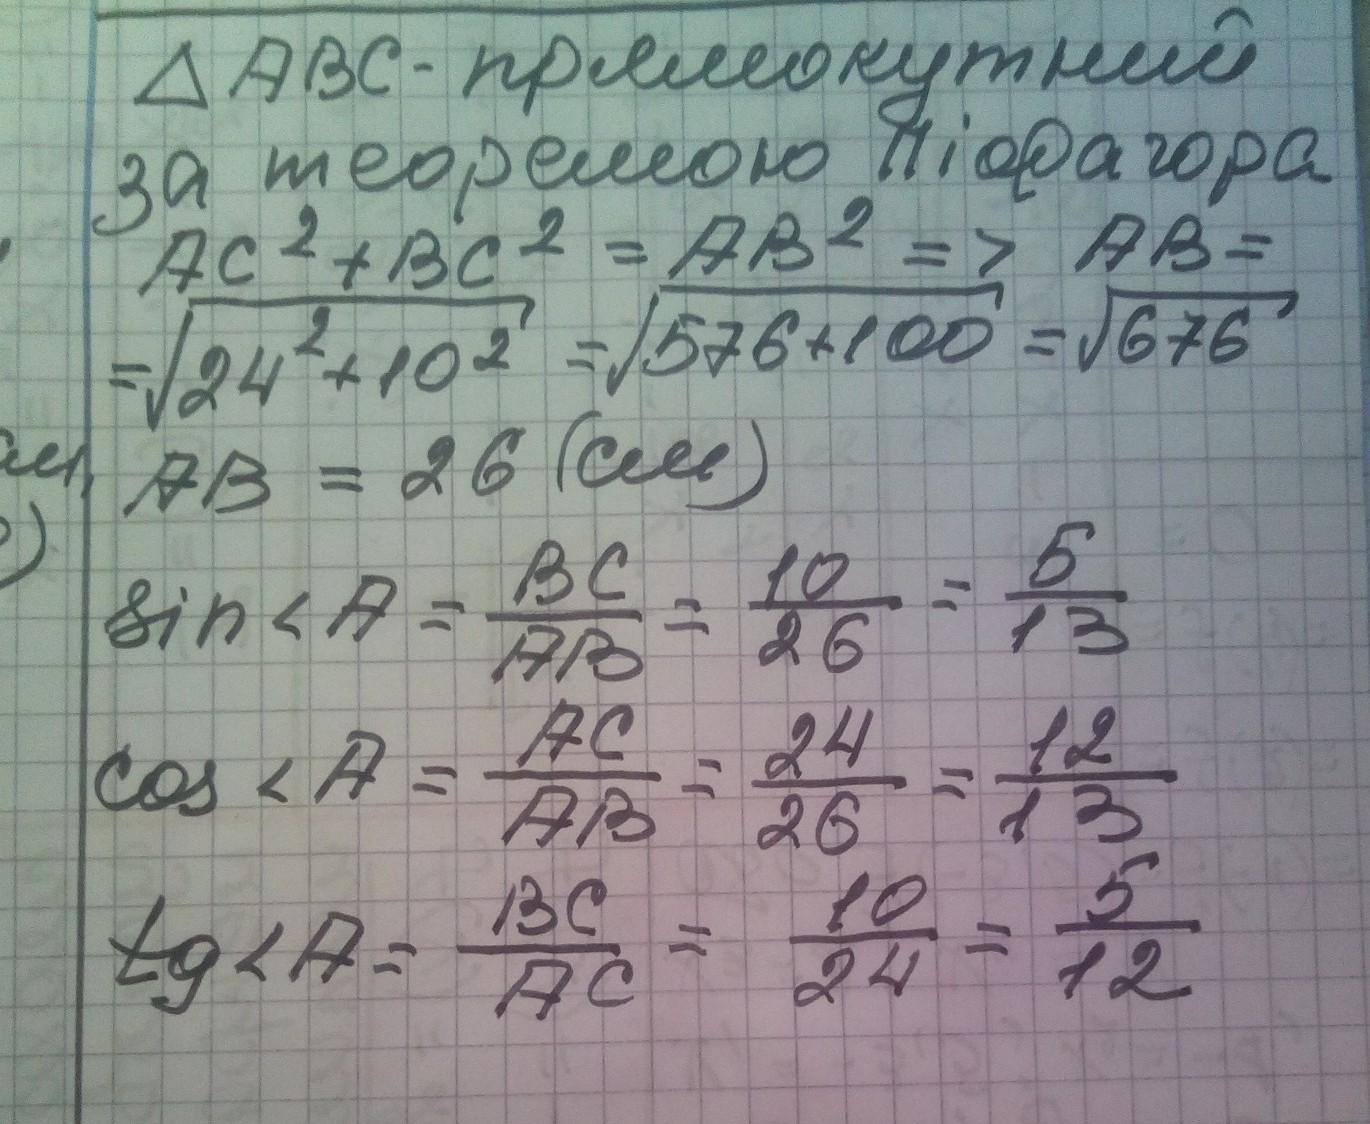 △ ABC - прямокутний
за теоремою Піфагора
AC² + BC² = AB² => AB =
= √24² + 10² = √576 + 100 = √676
AB = 26 (см)
sin < A = BC/AB = 10/26 = 5/13
cos < A = AC/AB = 24/26 = 12/13
tg < A = BC/AC = 10/24 = 5/12